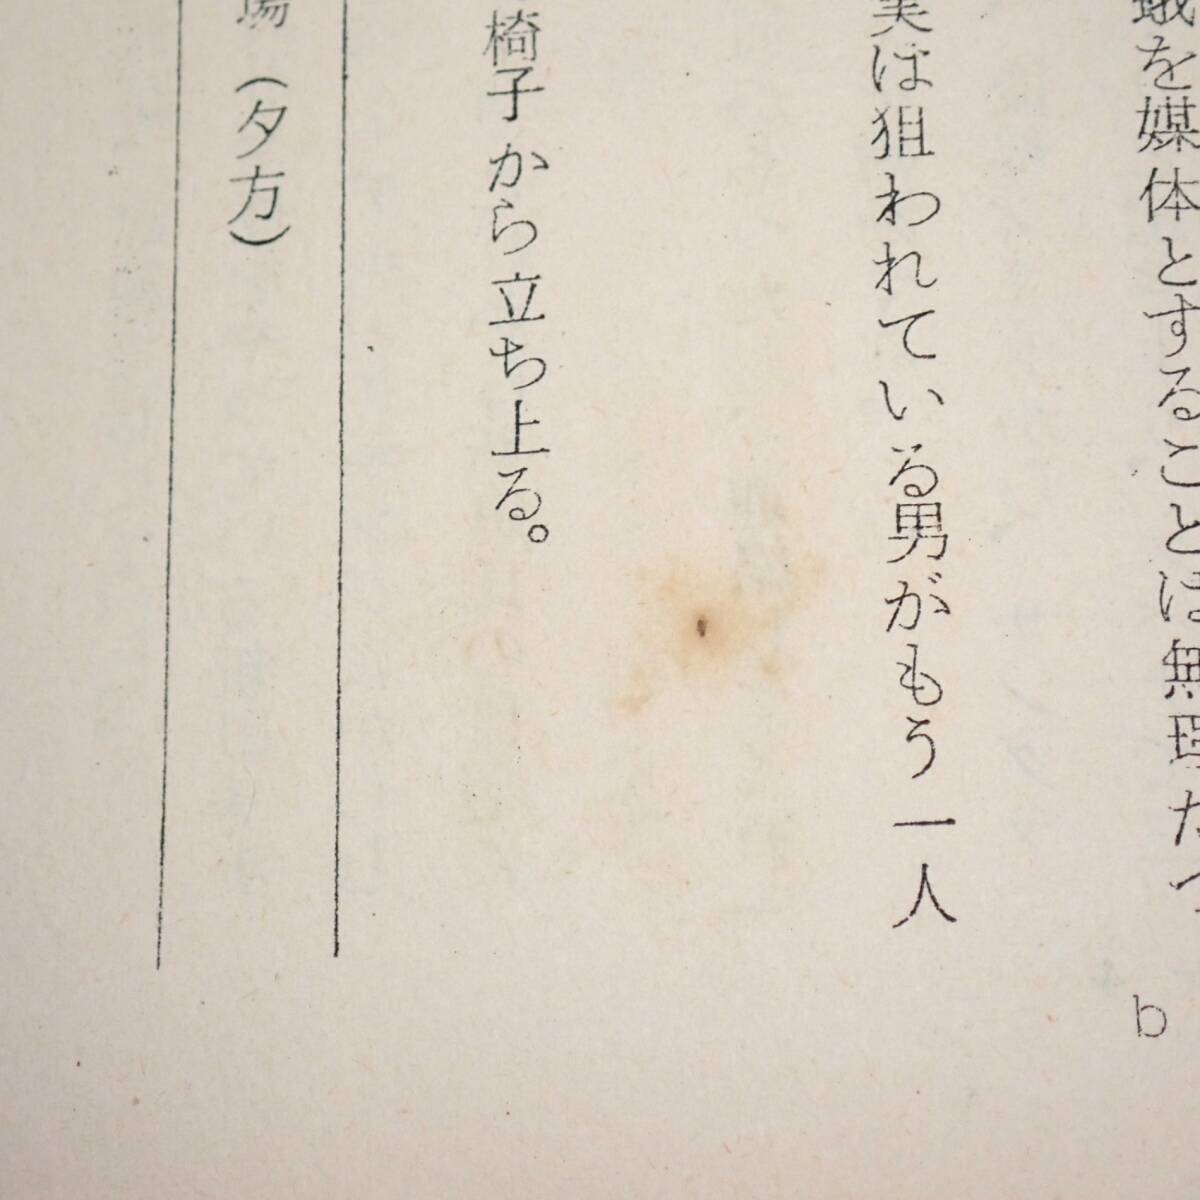 蛾を媒体とすることは無理だ
実は狙われている男がもう一人
椅子から立ち上る。
場（夕方）
b